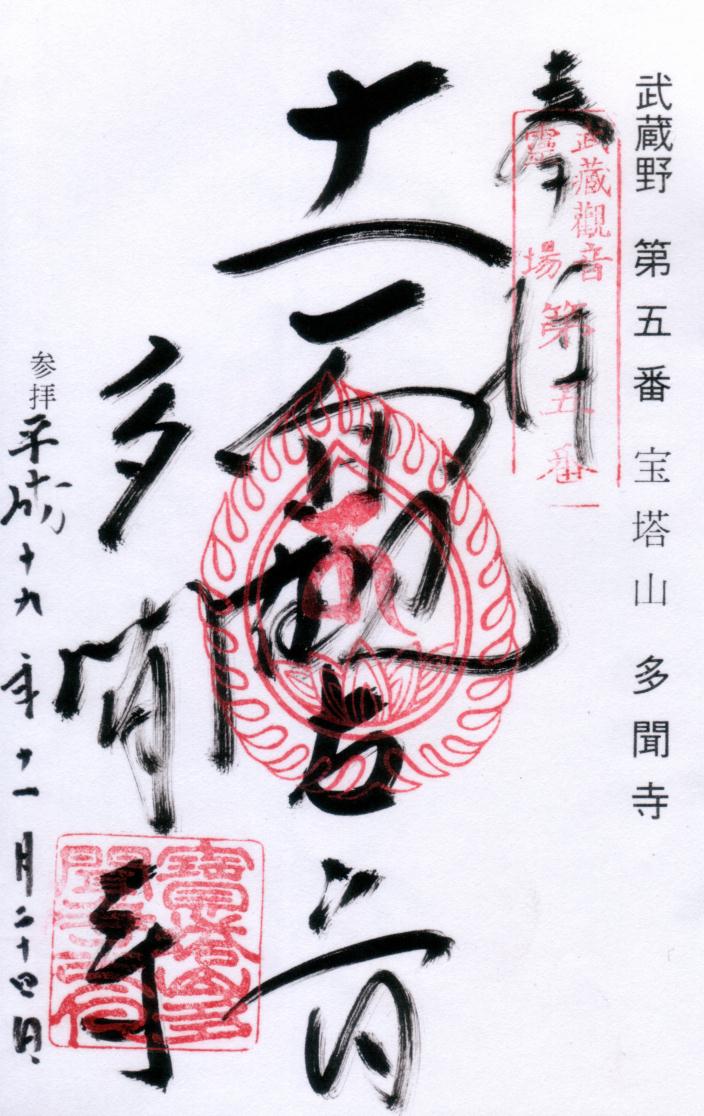 武蔵野 第五番 宝塔山 多聞寺
奉拝
武藏觀音
靈場
第五番
十一面観世音
多聞寺
参拝 平成十九年十一月二十四日